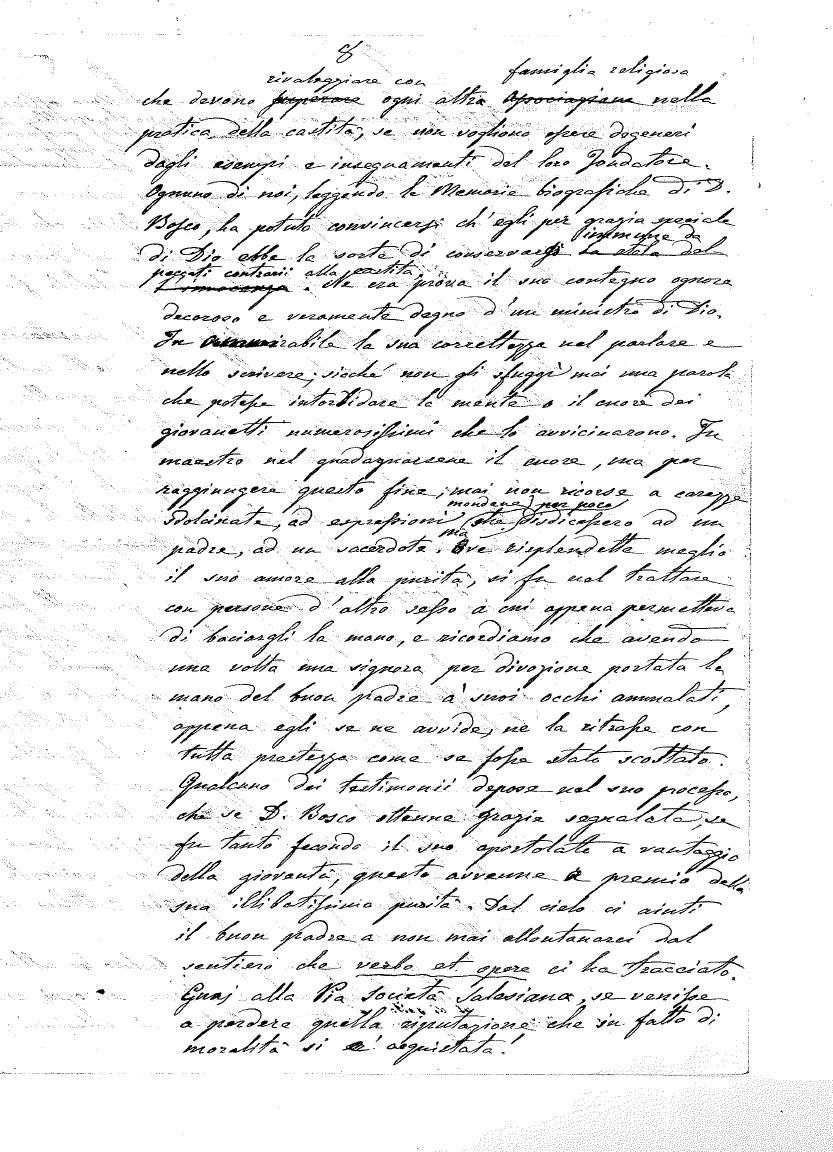 8
rivaleggiare con famiglia religiosa
che devono superare ogni altra associazione nella
pratica della castità, se non vogliono essere degeneri
dagli esempi e insegnamenti del loro Fondatore.
Ognuno di noi, leggendo le Memorie biografiche di D.
Bosco, ha potuto convincersi ch'egli per grazia speciale
immune da
di Dio ebbe la sorte di conservarsi la stola del
peccati contrarii alla castità
l'innocenza. Ne era prova il suo contegno ognora
decoroso e veramente degno d'un ministro di Dio.
Fu ammirabile la sua correttezza nel parlare e
nello scrivere; sicché non gli sfuggì mai una parola
che potesse intorbidare la mente o il cuore dei
giovanetti numerosissimi che lo avvicinarono. Fu
maestro nel guadagnarsene il cuore, ma per
raggiungere questo fine, mai non ricorse a carezze
mondane, per poco
sdolcinate, ad espressioni che disdicessero ad un
ma
padre, ad un sacerdote. Ove risplendette meglio
il suo amore alla purità, si fu nel trattare
con persone d'altro sesso a cui appena permetteva
di baciargli la mano, e ricordiamo che avendo
una volta una signora per divozione portata la
mano del buon padre a' suoi occhi ammalati,
appena egli se ne avvide, ne la ritrasse con
tutta prestezza come se fosse stato scottato.
Qualcuno dei testimonii depose nel suo processo,
che se D. Bosco ottenne grazie segnalate, se
fu tanto fecondo il suo apostolato a vantaggio
della gioventù, questo avvenne a premio della
sua illibatissima purità. Dal cielo ci aiuti
il buon padre a non mai allontanarci dal
sentiero che verbo et opere ci ha tracciato.
Guaj alla Pia Società Salesiana, se venisse
a perdere quella riputazione che in fatto di
moralità si è acquistata!